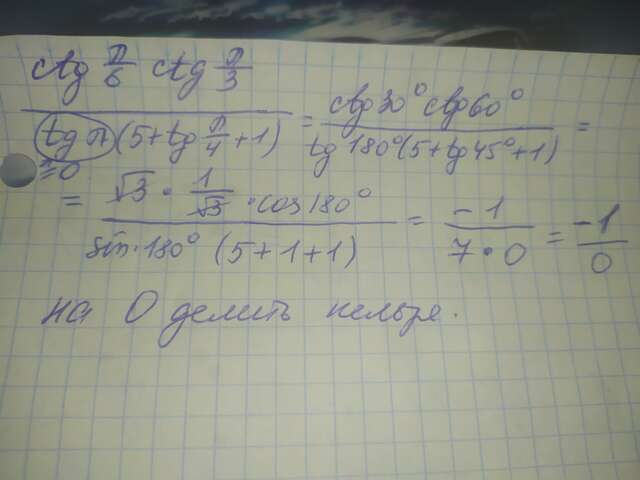 ctg π/6 ctg π/3 / tg π (5+tg π/4 +1) = ctg 30° ctg 60° / tg 180° (5+tg 45°+1) =
=0
= √3 · 1/√3 · cos 180° / sin · 180° (5+1+1) = -1 / 7·0 = -1/0
на 0 делить нельзя.